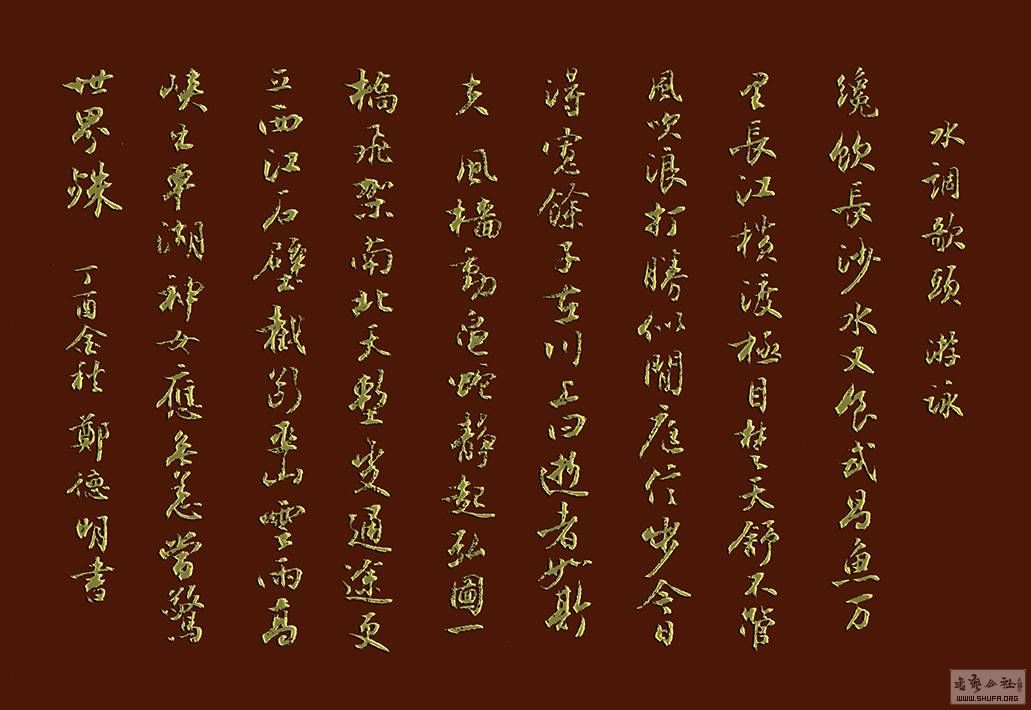 水調歌頭 游詠
纔飲長沙水又食武昌魚万
里長江横渡極目楚天舒不管
風吹浪打勝似閒庭信步今日
得寛餘子在川上曰逝者如斯
夫 風檣動龜蛇靜起弘圖一
橋飛架南北天塹變通途更
立西江石壁截斷巫山雲雨高
峽出平湖神女應無恙當驚
世界殊 丁酉金秋 鄭德明書
WWW.SHUFA.ORG